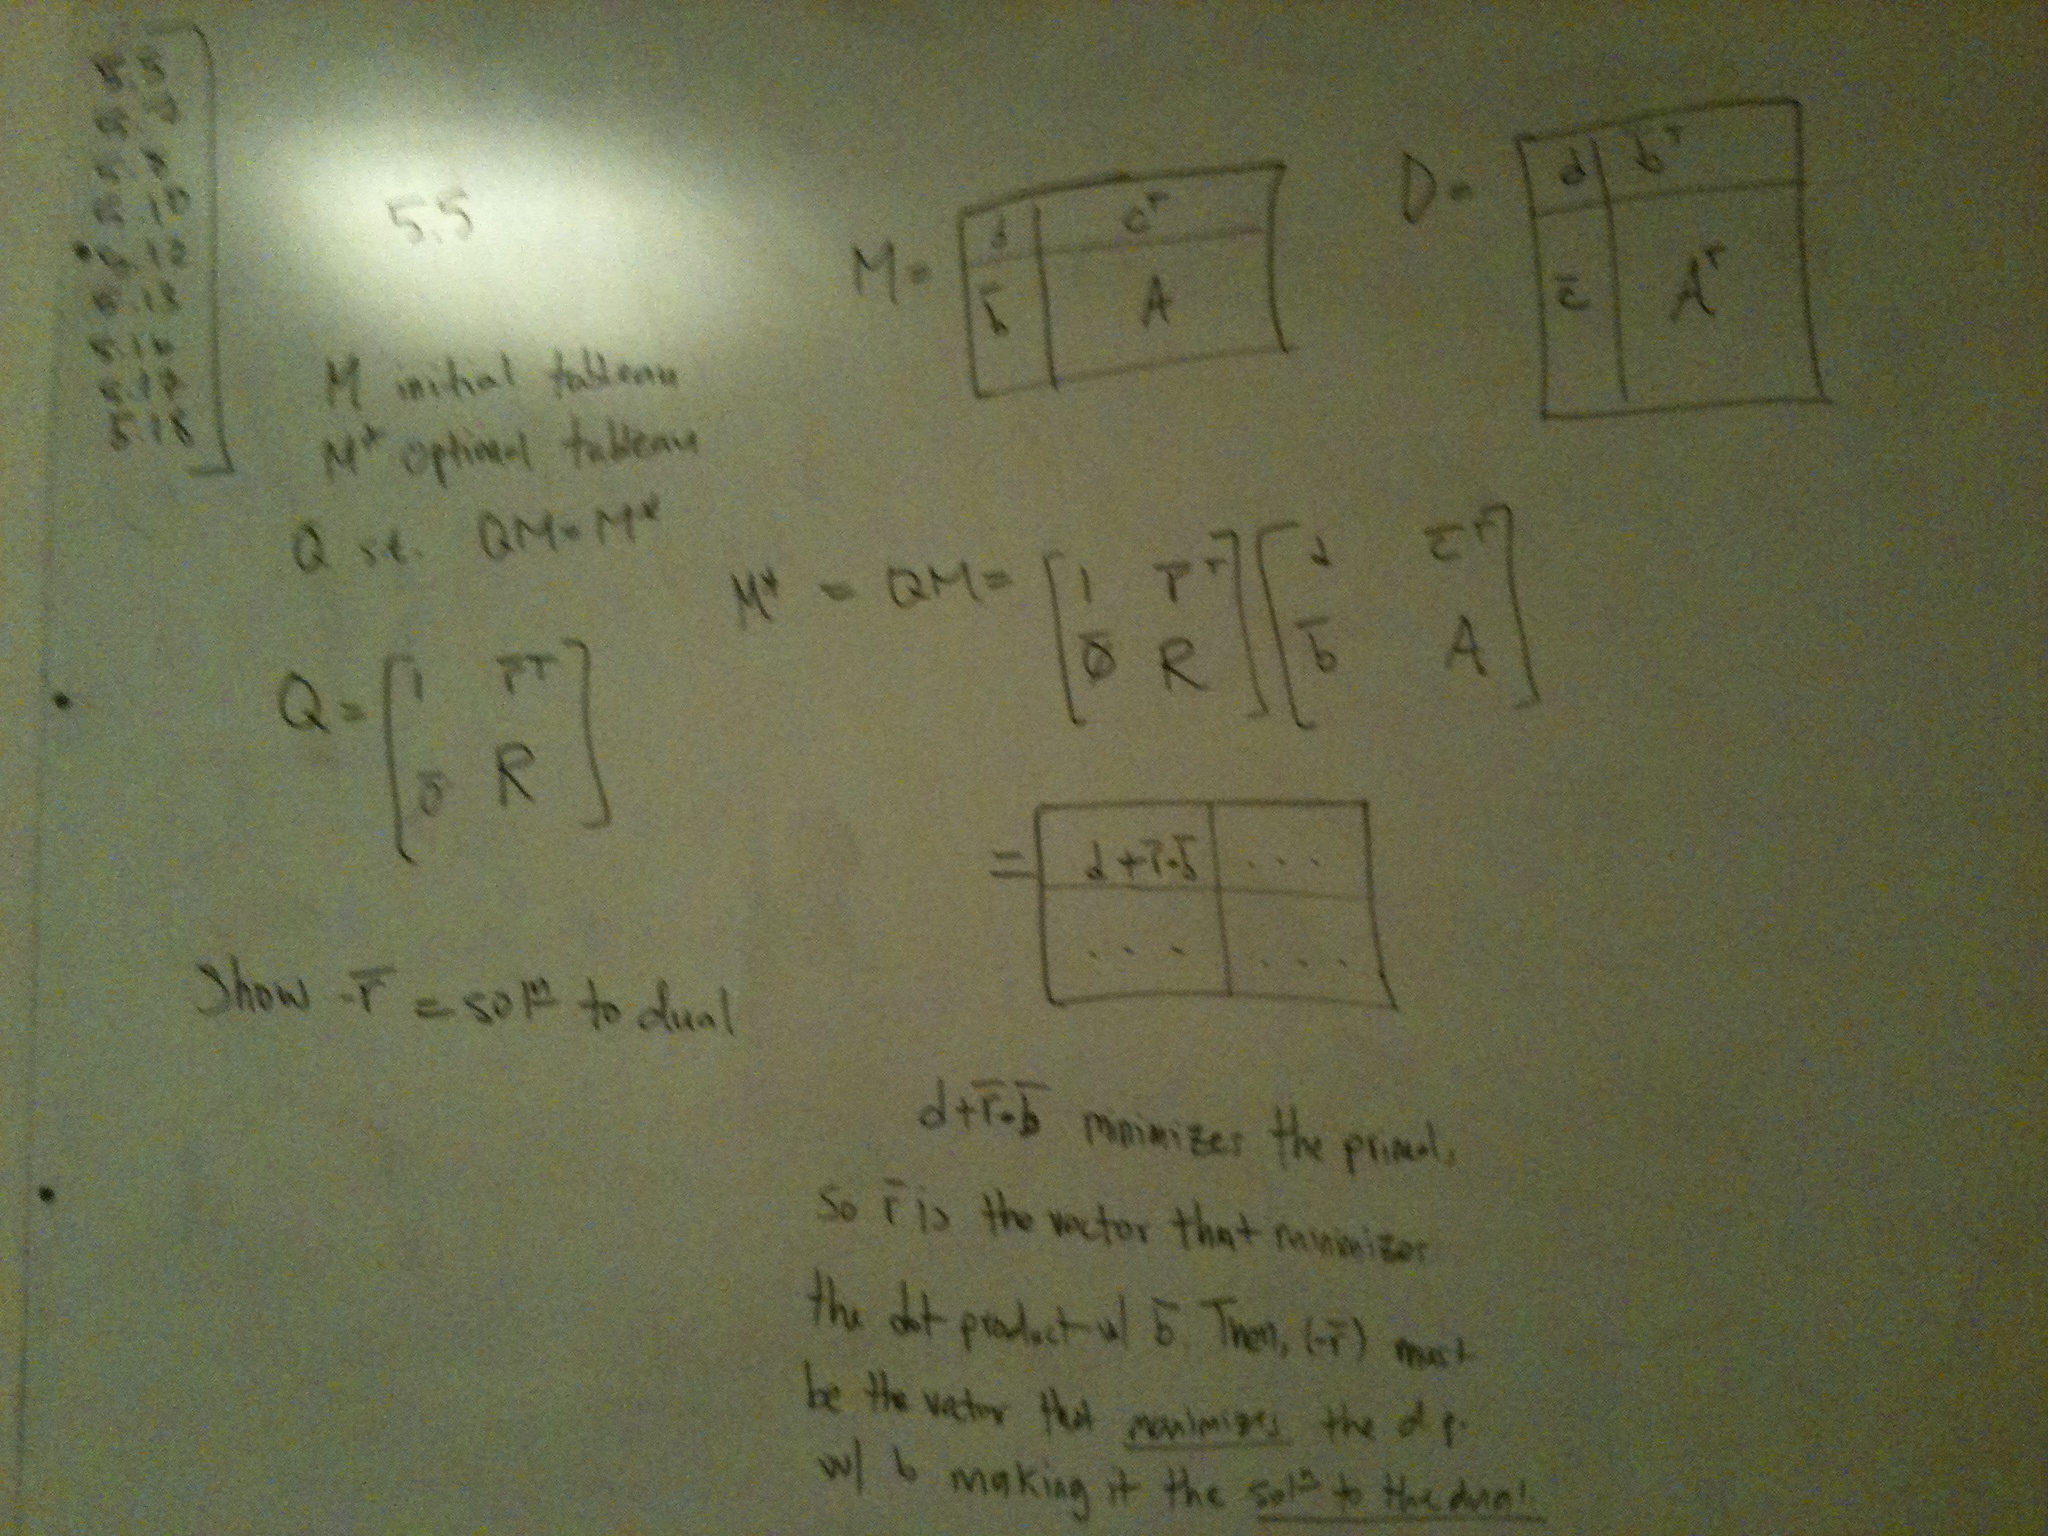 5.5
5.10
5.12
5.13
5.16
5.17
5.18
5.5
M initial tableau
M* optimal tableau
Q st. QM = M*
Q = [ 1 r̄ᵀ
0̄ R ]
Show -r̄ = solⁿ to dual
M =
d cᵀ
b̄ A
D =
d bᵀ
c̄ Aᵀ
M* = QM = [ 1 r̄ᵀ ] [ d c̄ᵀ ]
[ 0̄ R ] [ b̄ A ]
= d + r̄·b̄ ...
... ...
d + r̄·b̄ minimizes the primal,
so r̄ is the vector that minimizes
the dot product w/ b̄. Then, (-r̄) must
be the vector that maximizes the d.p.
w/ b making it the solⁿ to the dual.